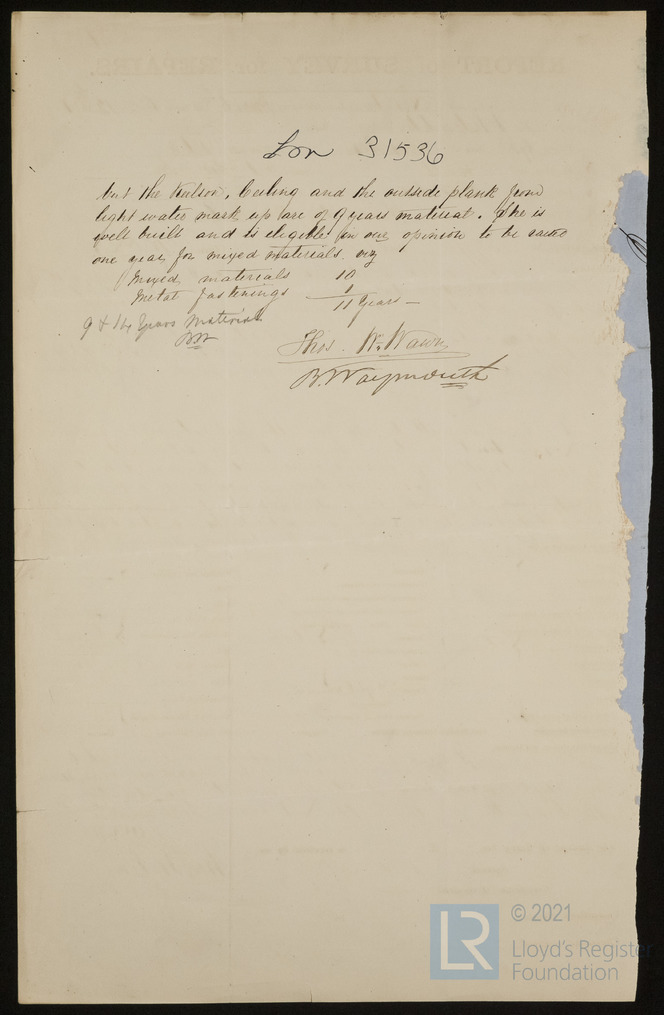 Lon 31536
but the Keelson, Ceiling and the outside plank from
light water mark up are of 9 years material. She is
well built and is eligible in our opinion to be rated
one year for mixed materials. viz
Mixed materials 10
Metal fastenings 1
11 Years —
9 & 14 Years Material
Thos. Wm. Wawn
B. Waymouth
LR
© 2021
Lloyd's Register
Foundation